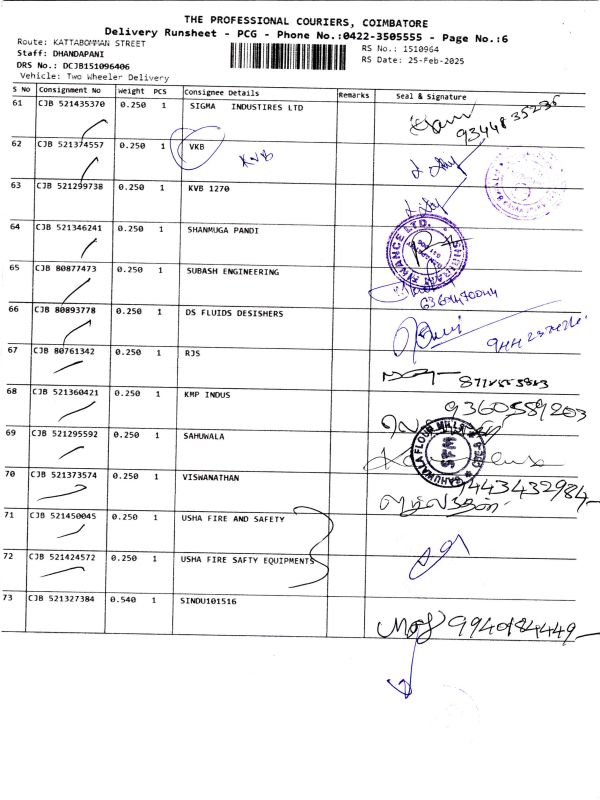 THE PROFESSIONAL COURIERS, COIMBATORE
Delivery Runsheet - PCG - Phone No.:0422-3505555 - Page No.:6
Route: KATTABOMMAN STREET
RS No.: 1510964
Staff: DHANDAPANI
RS Date: 25-Feb-2025
DRS No.: DCJB151096406
Vehicle: Two Wheeler Delivery
S No Consignment No Weight PCS Consignee Details Remarks Seal & Signature
61 CJB 521435370 0.250 1 SIGMA INDUSTIRES LTD
9344835235
62 CJB 521374557 0.250 1 VKB KVB
63 CJB 521299738 0.250 1 KVB 1270
64 CJB 521346241 0.250 1 SHANMUGA PANDI
FINANCE LTD.
65 CJB 80877473 0.250 1 SUBASH ENGINEERING
66 CJB 80893778 0.250 1 DS FLUIDS DESISHERS
67 CJB 80761342 0.250 1 RJS
68 CJB 521360421 0.250 1 KMP INDUS
9360589203
69 CJB 521295592 0.250 1 SAHUWALA
SAHUWALA FLOUR MILLS
SFM
70 CJB 521373574 0.250 1 VISWANATHAN
9443432984
71 CJB 521450045 0.250 1 USHA FIRE AND SAFETY
72 CJB 521424572 0.250 1 USHA FIRE SAFTY EQUIPMENTS
73 CJB 521327384 0.540 1 SINDU101516
9940184449